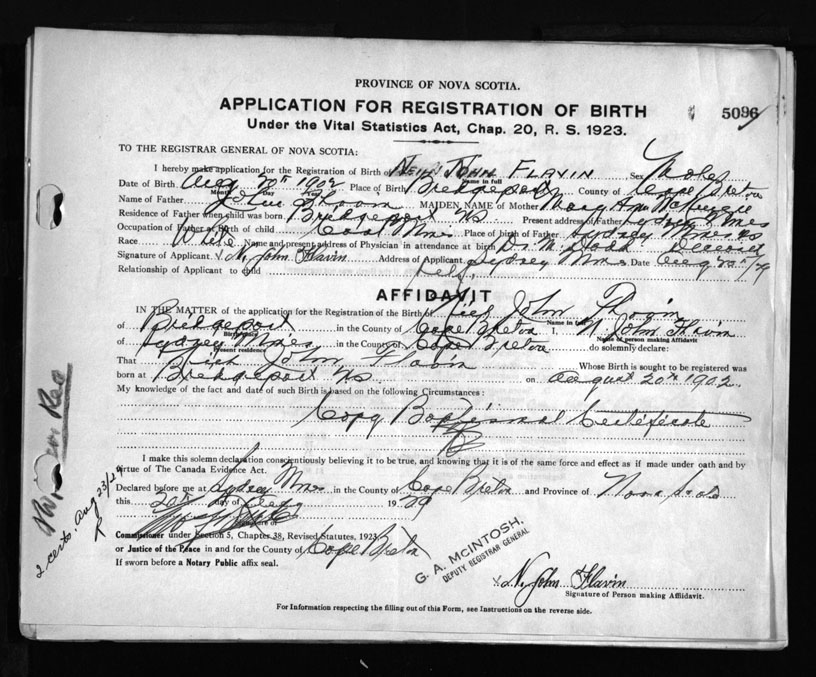 PROVINCE OF NOVA SCOTIA.
APPLICATION FOR REGISTRATION OF BIRTH 5096
Under the Vital Statistics Act, Chap. 20, R. S. 1923.
TO THE REGISTRAR GENERAL OF NOVA SCOTIA:
I hereby make application for the Registration of Birth of Neil John Flavin Sex Male
Name in full
Date of Birth Aug 20th 1902 Place of Birth Bridgeport County of Cape Breton
Month Day Year
Name of Father John MAIDEN NAME of Mother Mary Ann
Residence of Father when child was born Bridgeport NS Present address of Father Sydney Mines
Occupation of Father at Birth of child Coal Place of birth of Father Sydney Mines NS
Race White Name and present address of Physician in attendance at birth Dr. M. Dodd Deceased
Signature of Applicant N. John Flavin Address of Applicant Sydney Mines Date Aug 20th/29
Relationship of Applicant to child self
AFFIDAVIT
IN THE MATTER of the application for the Registration of the Birth of Neil John Flavin
Name in full
of Bridgeport in the County of Cape Breton I, N. John Flavin
Birthplace Name of person making Affidavit
of Sydney Mines in the County of Cape Breton do solemnly declare:
Present residence
That Neil John Flavin Whose Birth is sought to be registered was
born at Bridgeport NS on August 20th 1902
My knowledge of the fact and date of such Birth is based on the following Circumstances:
Copy Baptismal Certificate
I make this solemn declaration conscientiously believing it to be true, and knowing that it is of the same force and effect as if made under oath and by
virtue of The Canada Evidence Act.
Declared before me at Sydney Mines in the County of Cape Breton and Province of Nova Scotia
this 20th day of Aug 1929
Signature of
Commissioner under Section 5, Chapter 38, Revised Statutes, 1923
or Justice of the Peace in and for the County of Cape Breton
If sworn before a Notary Public affix seal.
G. A. McINTOSH,
DEPUTY REGISTRAR GENERAL
N. John Flavin
Signature of Person making Affidavit.
For Information respecting the filling out of this Form, see Instructions on the reverse side.
2 certs. Aug 23/29